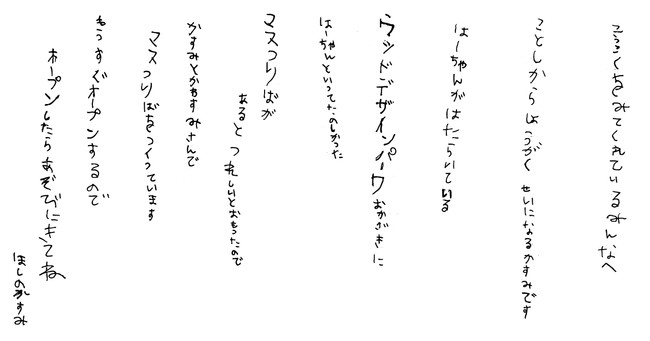 こうこくをみてくれているみんなへ
ことしからしょうがくせいになるかすみです
はーちゃんがはたらいている
ウッドデザインパークおかざきに
はーちゃんといってたのしかった
マスつりばが
あるとうれしいとおもったので
かすみとかすみさんで
マスつりばをつくっています
もうすぐオープンするので
オープンしたらあそびにきてね
ほしのかすみ